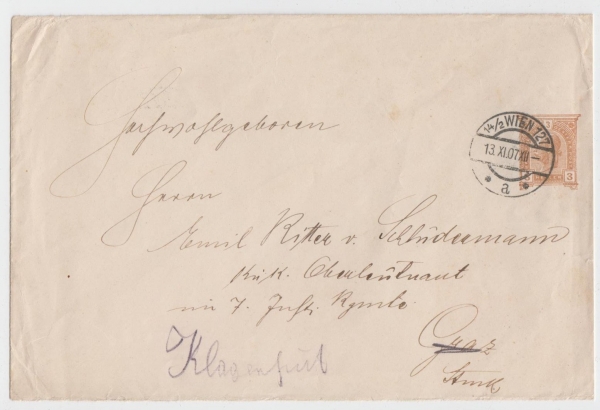 Hochwohlgeboren
Herrn
Emil Ritter v. Schludermann
k.u.k. Oberleutnant
im 7. Inft. Rgmte.
Graz
Klagenfurt
14/2 WIEN 127
13. XI. 07 XII
a
3
3
3